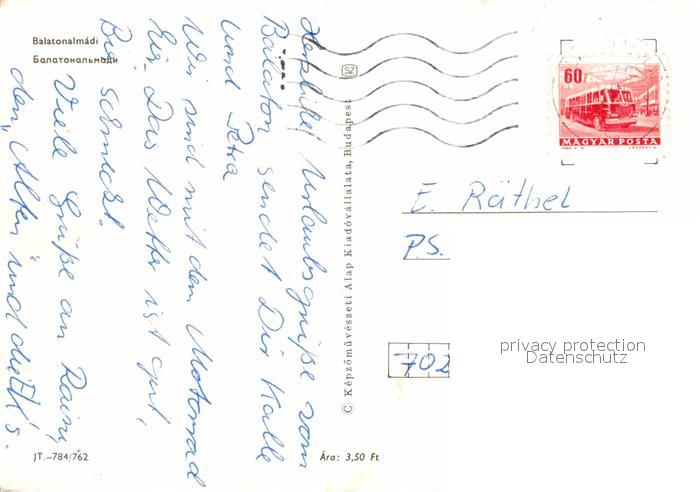 Balatonalmádi
Балатональмади
Herzliche Urlaubsgrüße vom
Balaton sendet Dir Kalle
und Petra
Wir sind mit dem Motorrad
hier. Das Wetter ist gut,
Bier schmeckt.
Viele Grüße an Raini,
den "Alten" und die
JT.–784/762.
Ára: 3,50 Ft
© Képzőművészeti Alap Kiadóvállalata, Budapest
SZ
60f
MAGYAR POSTA
E. Räthel
PS.
702
privacy protection
Datenschutz